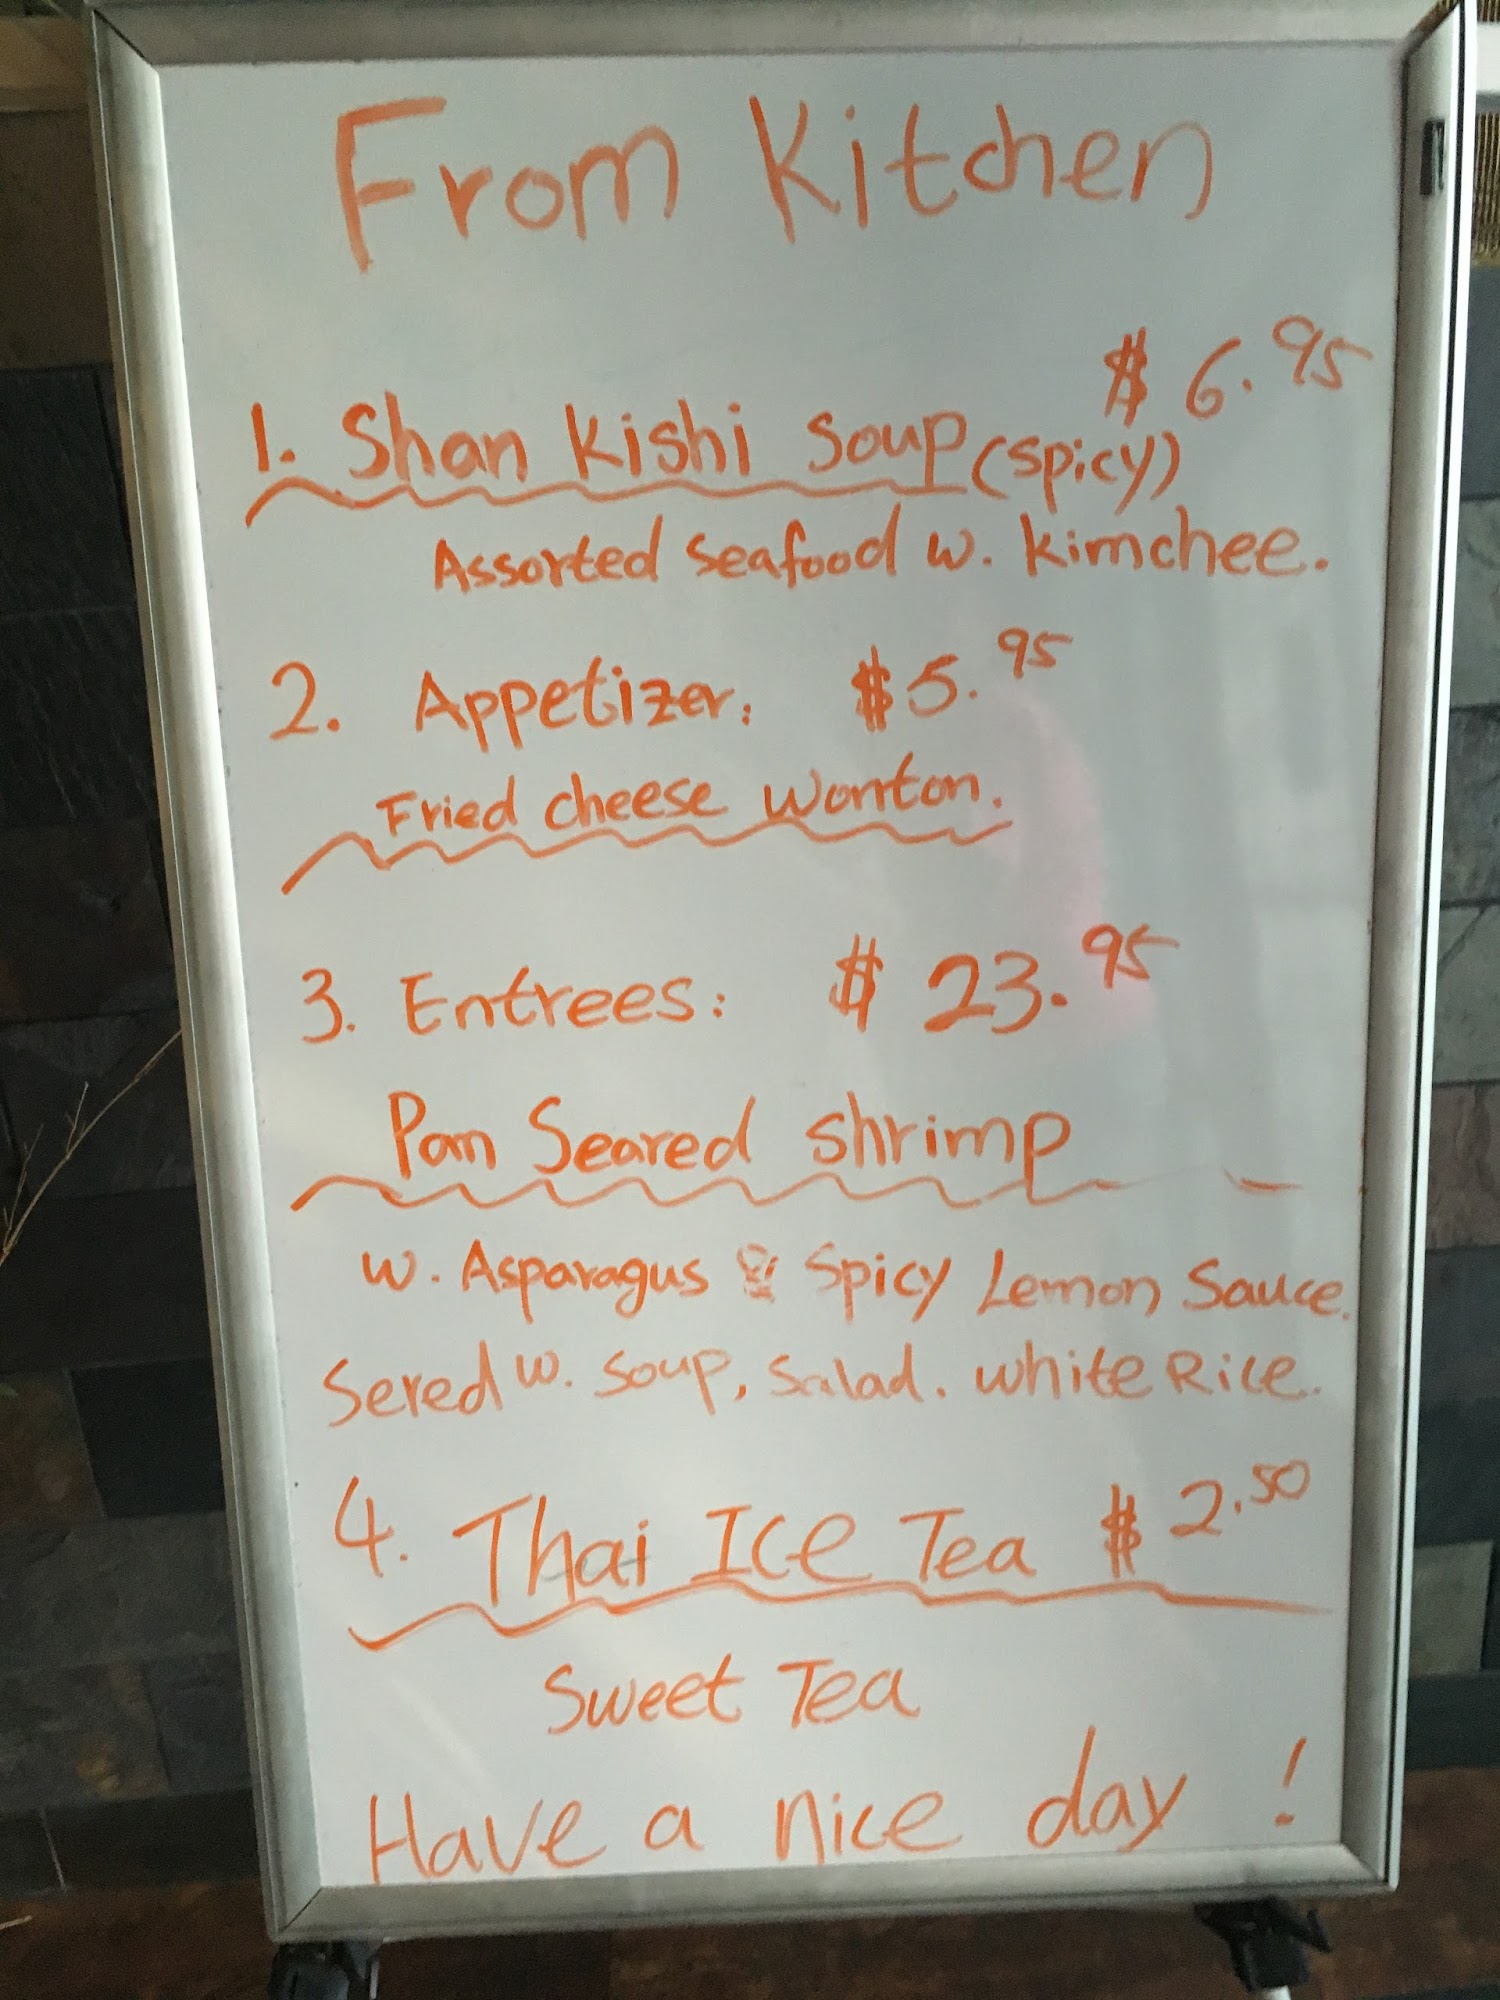 From Kitchen
$6.95
1. Shan Kishi Soup (spicy)
Assorted seafood w. Kimchee.
2. Appetizer: $5.95
Fried cheese Wonton.
3. Entrees: $23.95
Pan Seared shrimp
w. Asparagus & Spicy Lemon Sauce.
Sered w. Soup, Salad. White Rice.
4. Thai Ice Tea $2.50
Sweet Tea
Have a nice day !